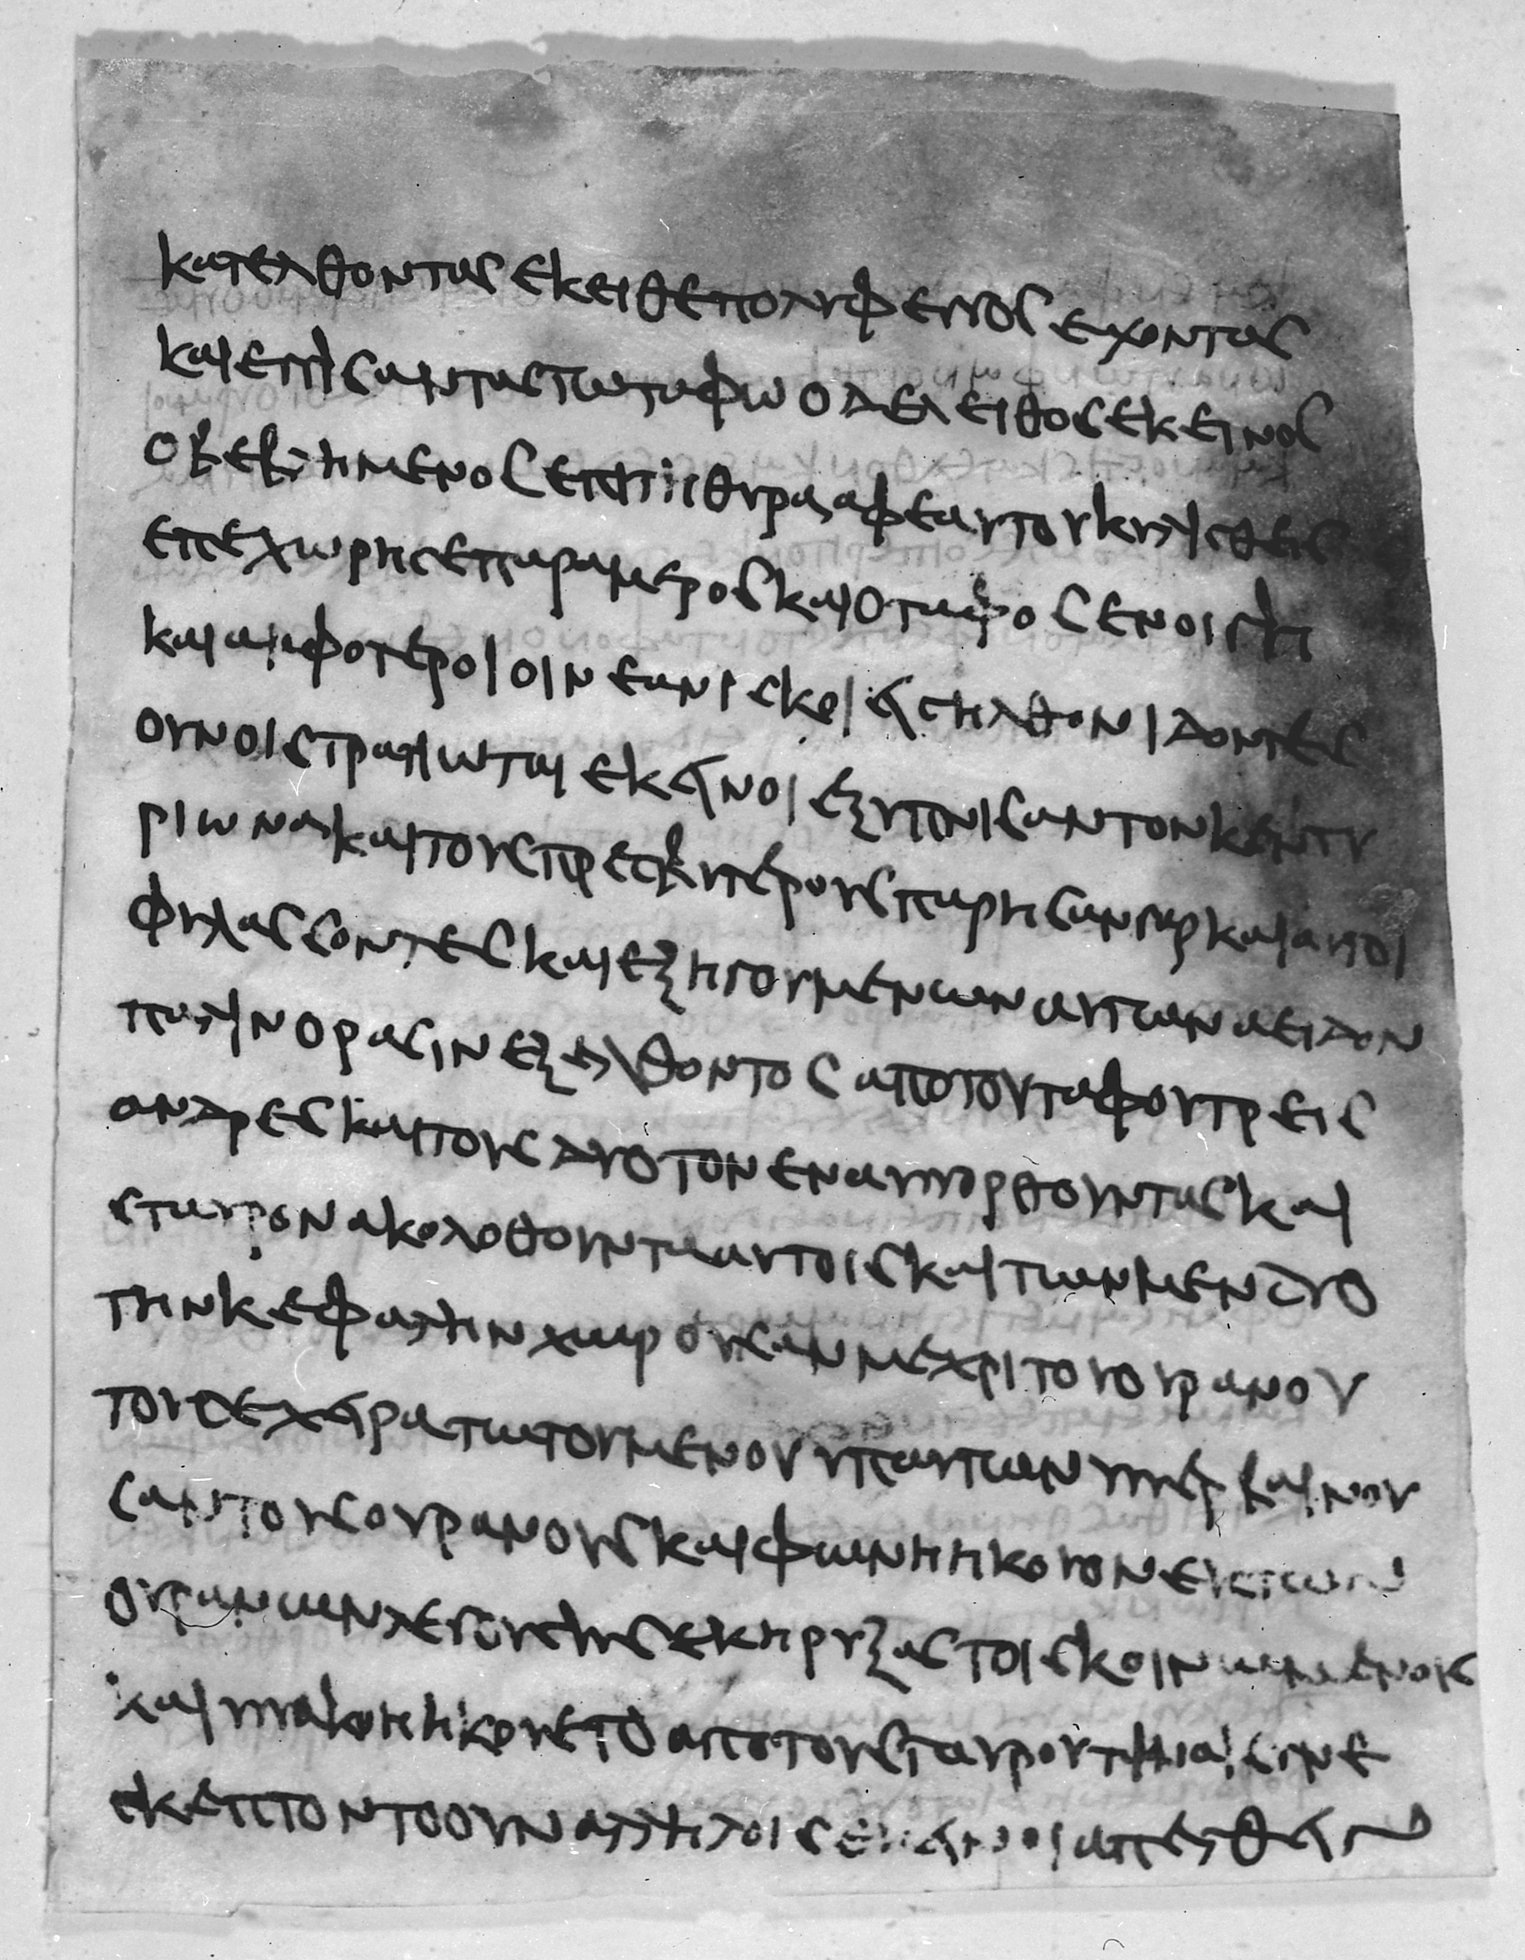 κατελθοντας εκειθε πολυ φεγγος εχοντας
και επισαντας τω ταφω ο δε λειθος εκεινος
ο βεβλημενος επι τη θυρα αφ εαυτου κυλισθεις
επεχωρησε παρα μερος και ο ταφος ενοιγη
και αμφοτεροι οι νεανισκοι εισηλθον ιδοντες
ουν οι στρατιωται εκεινοι εξυπνισαν τον κεντυ
ριωνα και τους πρεσβυτερους παρησαν γαρ και αυτοι
φυλασσοντες και εξηγουμενων αυτων α ειδον
παλιν ορασιν εξελθοντος απο του ταφου τρεις
ανδρες και τους δυο τον ενα υπορθουντας και
σταυρον ακολοθουντα αυτοις και των μεν δυο
την κεφαλην χωρουσαν μεχρι του ουρανου
του δε χειρατωτουμενου υπ αυτων υπερβαινου
σαν τους ουρανους και φωνη ηκουον εκ των
ουρανων λεγουσης εκηρυξας τοις κοινωμενοις
και υπακοη ηκουετο απο του σταυρου τιναι συνε
σκεπτοντο ουν αλληλοις εκεινοι απελθειν